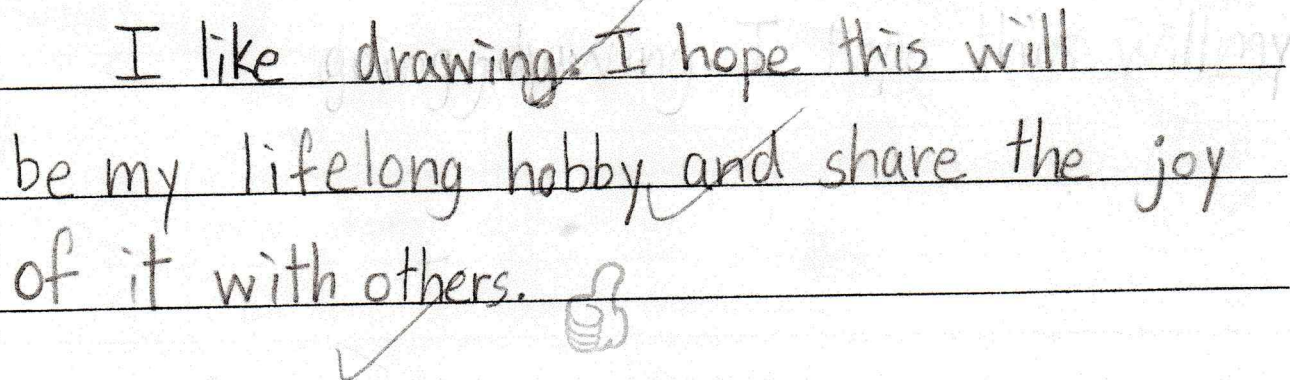 I like drawing. I hope this will
be my lifelong hobby, and share the joy
of it with others.